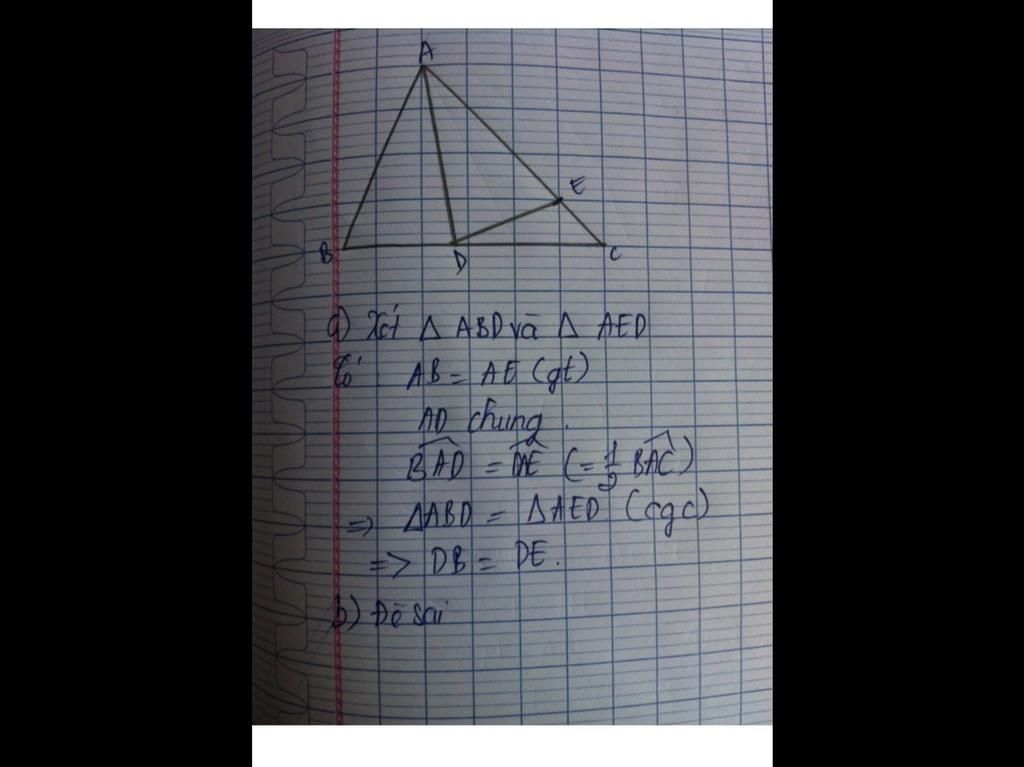 A
E
B
D
C
a) Xét Δ ABD và Δ AED
Có: AB = AE (gt)
AD chung.
BAD = DAE (= 1/2 BAC)
=> ΔABD = ΔAED (cgc)
=> DB = DE.
b) Đề sai